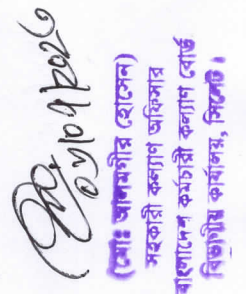 ০৬/০৭/২০২৩
(মোঃ আলমগীর হোসেন)
সহকারী কল্যাণ অফিসার
বাংলাদেশ কর্মচারী কল্যাণ বোর্ড
বিভাগীয় কার্যালয়, সিলেট।